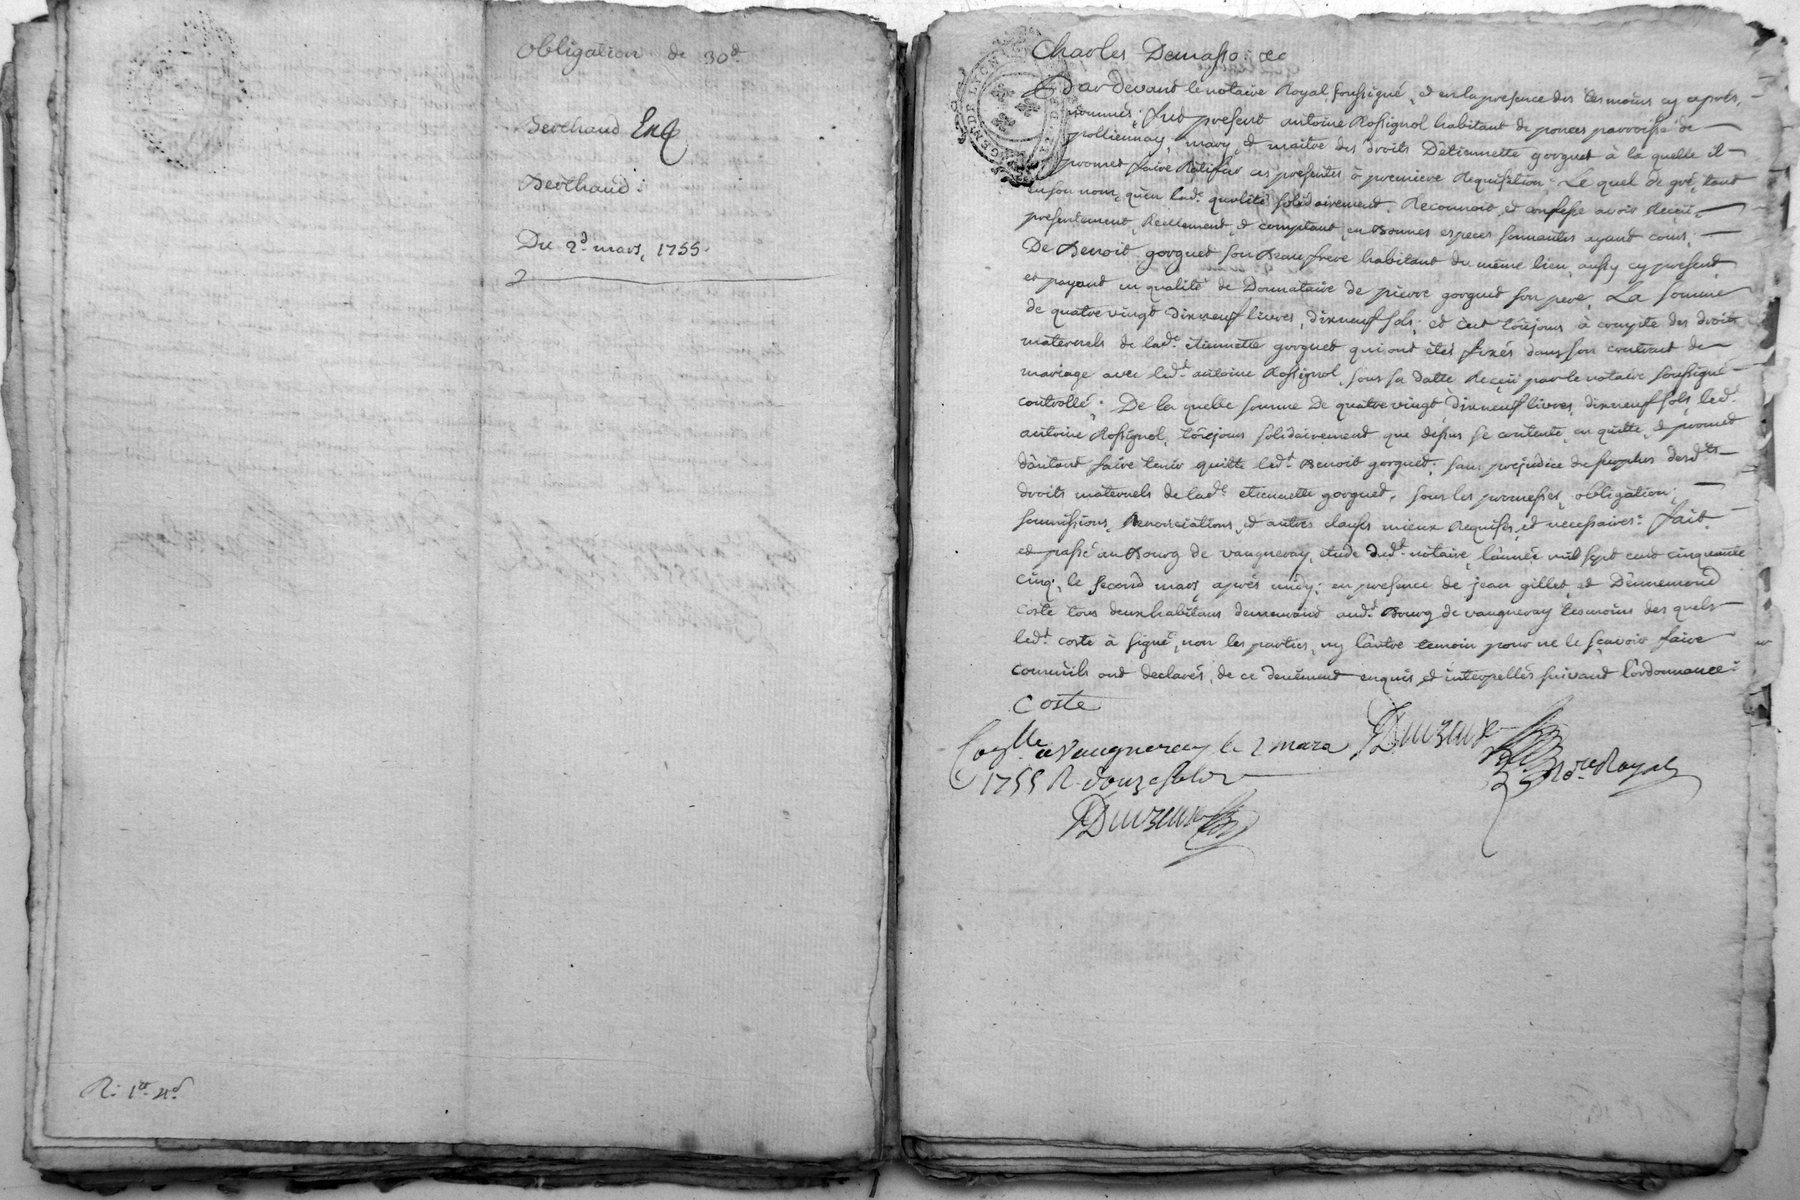 Obligation de 30#
Berthaud Exp
Berthaud:
Du 2d. mars, 1755.
R. 1# 4s
Charles Demasso: &c
Pardevant le notaire Royal soussigné, et en la presence des tesmoins cy après,
nommés; fut present antoine Rossignol habitant de ponces parroisse de
polliennay, mary, et maitre des droits D'etiennette gorguet à la quelle il
promet faire Ratifier ces presentes à premiere Requisition; Le quel de gré, tant
en son nom, qu'en lad.e qualité solidairement, Reconnoit, et confesse avoir Receu,
presentement, Reellement, et comptant, en Bonnes especes sonnantes ayant cours;
De Benoit gorguet son Beaufrere habitant du même lieu, aussy cy present,
et payant en qualité de Donnataire de pierre gorguet son pere, La somme
de quatre vingt dixneuf livres, dixneuf sols; et c'est toûjours à compte des droits
maternels de lad.e etiennette gorguet qui ont étés fixés dans son contract de
mariage avec led.t antoine Rossignol, sous sa datte Receu par le notaire soussigné
controllé; De la quelle somme De quatre vingt dixneuf livres, dixneuf sols, led.t
antoine Rossignol, toûjours solidairement que dessus se contente, en quitte, et promet
d'autant faire tenir quitte led.t Benoit gorguet; sans prejudice du surplus desd.ts
droits maternels de lad.e etiennette gorguet, sous les promesses, obligation;
soumissions, Renonciations, et autres clauses mieux Requises, et necessaires: fait
et passé au Bourg de vaugneray, etude dud.t notaire, l'année mil sept cent cinquante
cinq, le second mars, après midy; en presence de jean gillet, et D'ennemond
coste tous deux habitans demeurand aud.t Bourg de vaugneray tesmoins des quels
led.t coste à signé, non les parties, ny l'autre temoin pour ne le sçavoir faire
comm'ils ont declarés, de ce deüement enquis, et interpellés suivant l'ordonnance:
Coste
Con.lle a Vaugneray le 2 mars
1755 R. douze sols
No.re Royal